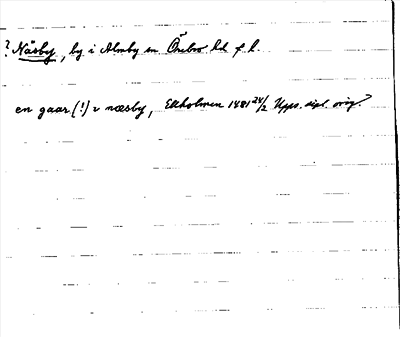 ? Näsby, by i Almby sn Örebro hd f. l.
en gaar (!) i næsby, Ekholmen 1481 24/2 Upps. dipl. orig.?